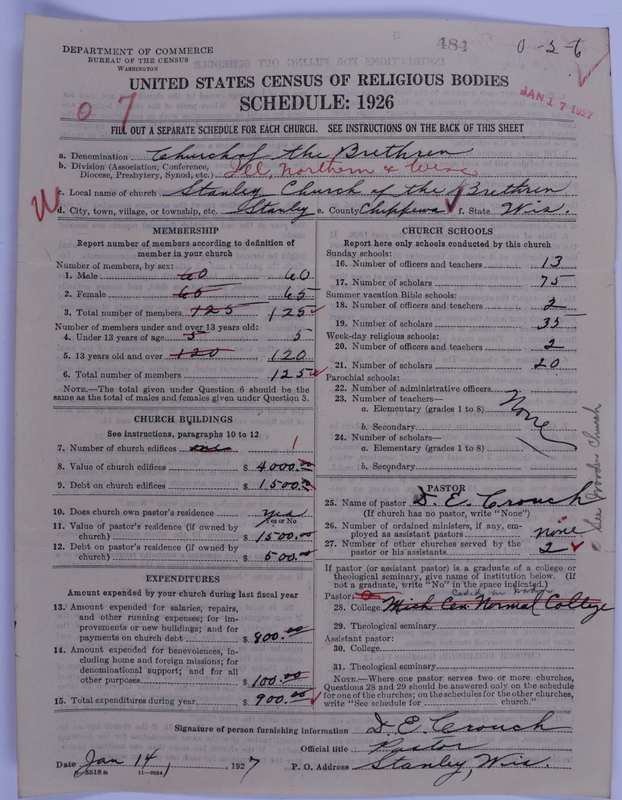 DEPARTMENT OF COMMERCE
BUREAU OF THE CENSUS
WASHINGTON
484
0-2-6
UNITED STATES CENSUS OF RELIGIOUS BODIES
SCHEDULE: 1926
JAN 17 1927
0 7
FILL OUT A SEPARATE SCHEDULE FOR EACH CHURCH. SEE INSTRUCTIONS ON THE BACK OF THIS SHEET
a. Denomination Church of the Brethren
b. Division (Association, Conference, Diocese, Presbytery, Synod, etc.) Ill. Northern & Wisc
c. Local name of church Stanley Church of the Brethren
W
d. City, town, village, or township, etc. Stanley e. County Chippewa f. State Wis.
MEMBERSHIP
Report number of members according to definition of
member in your church
Number of members, by sex:
1. Male 60 60
2. Female 65 65
3. Total number of members 125 125
Number of members under and over 13 years old:
4. Under 13 years of age 5 5
5. 13 years old and over 120 120
6. Total number of members 125
NOTE.—The total given under Question 6 should be the
same as the total of males and females given under Question 3.
CHURCH BUILDINGS
See instructions, paragraphs 10 to 12
7. Number of church edifices one 1
8. Value of church edifices $ 4000.00
9. Debt on church edifices $ 1500.00
10. Does church own pastor's residence? yes
Yes or No
11. Value of pastor's residence (if owned by
church) $ 1500.00
12. Debt on pastor's residence (if owned by
church) $ 500.00
EXPENDITURES
Amount expended by your church during last fiscal year
13. Amount expended for salaries, repairs,
and other running expenses; for im-
provements or new buildings; and for
payments on church debt $ 800.00
14. Amount expended for benevolences, in-
cluding home and foreign missions; for
denominational support; and for all
other purposes $ 100.00
15. Total expenditures during year $ 900.00
CHURCH SCHOOLS
Report here only schools conducted by this church
Sunday schools:
16. Number of officers and teachers 13
17. Number of scholars 75
Summer vacation Bible schools:
18. Number of officers and teachers 2
19. Number of scholars 35
Week-day religious schools:
20. Number of officers and teachers 2
21. Number of scholars 20
Parochial schools:
22. Number of administrative officers
23. Number of teachers—
a. Elementary (grades 1 to 8) None
b. Secondary
24. Number of scholars—
a. Elementary (grades 1 to 8)
b. Secondary
See Wooden Church
PASTOR
25. Name of pastor D. E. Crouch
(If church has no pastor, write "None")
26. Number of ordained ministers, if any, em-
ployed as assistant pastors none
27. Number of other churches served by the
pastor or his assistants 2
If pastor (or assistant pastor) is a graduate of a college or
theological seminary, give name of institution below. (If
not a graduate, write "No" in the space indicated.)
Pastor:
28. College Mich Cen Normal College
29. Theological seminary
Assistant pastor:
30. College
31. Theological seminary
NOTE.—Where one pastor serves two or more churches,
Questions 28 and 29 should be answered only on the schedule
for one of the churches; on the schedules for the other churches,
write "See schedule for church."
Signature of person furnishing information D. E. Crouch
Official title Pastor
Date Jan 14, 1927 P. O. Address Stanley, Wis.
11—9554